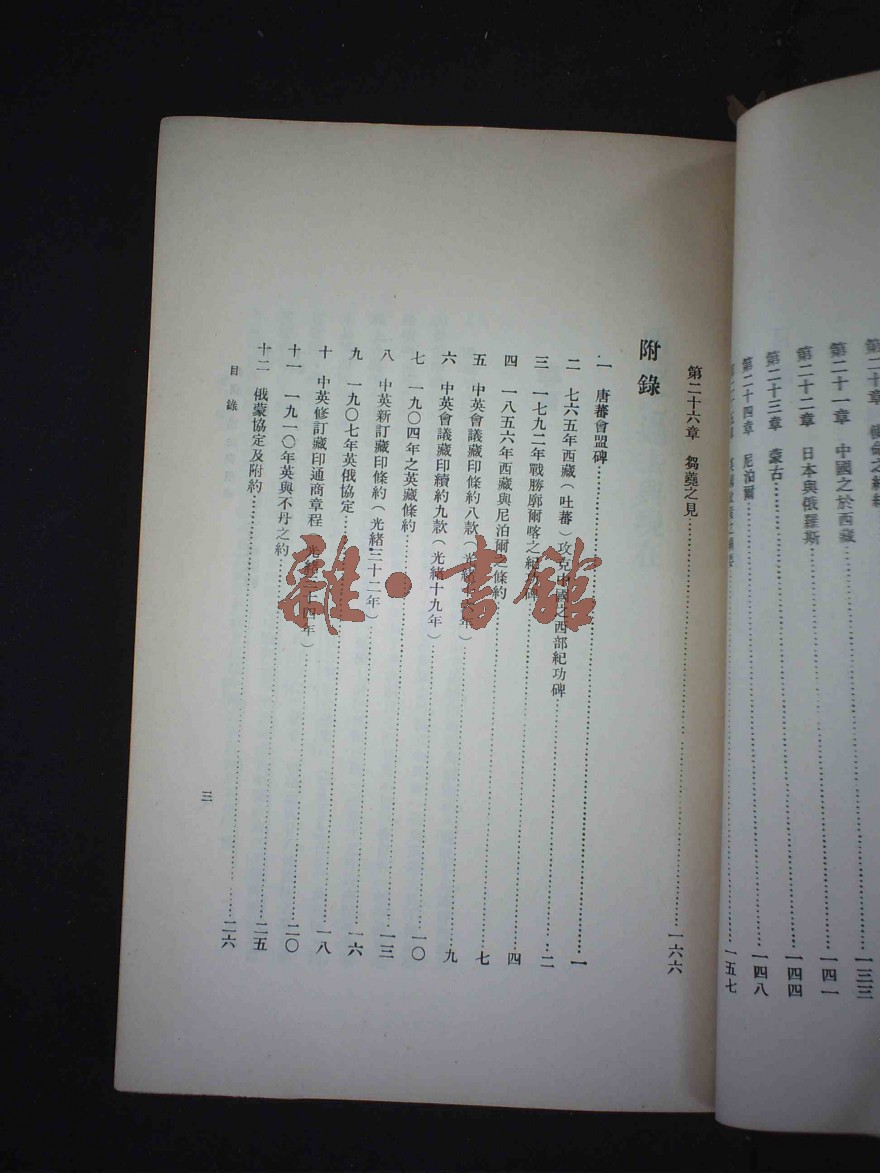 第二十章
一三三
第二十一章 中國之於西藏……一四一
第二十二章 日本與俄羅斯……一四四
第二十三章 蒙古……一四八
第二十四章 尼泊爾……一五七
第二十六章 芻蕘之見……一六六
附錄
一 唐蕃會盟碑……一
二 七六五年西藏(吐蕃)攻克中國之西部紀功碑……二
三 一七九二年戰勝廓爾喀之紀功碑……四
四 一八五六年西藏與尼泊爾之條約……七
五 中英會議藏印條約八款(光緒 年)……九
六 中英會議藏印續約九款(光緒十九年)……一〇
七 一九〇四年之英藏條約……一三
八 中英新訂藏印條約(光緒三十二年)……一六
九 一九〇七年英俄協定……一八
十 中英修訂藏印通商章程(光緒 十四年)……二〇
十一 一九一〇年英與不丹之約……二五
十二 俄蒙協定及附約……二六
目錄
三
雜·書館